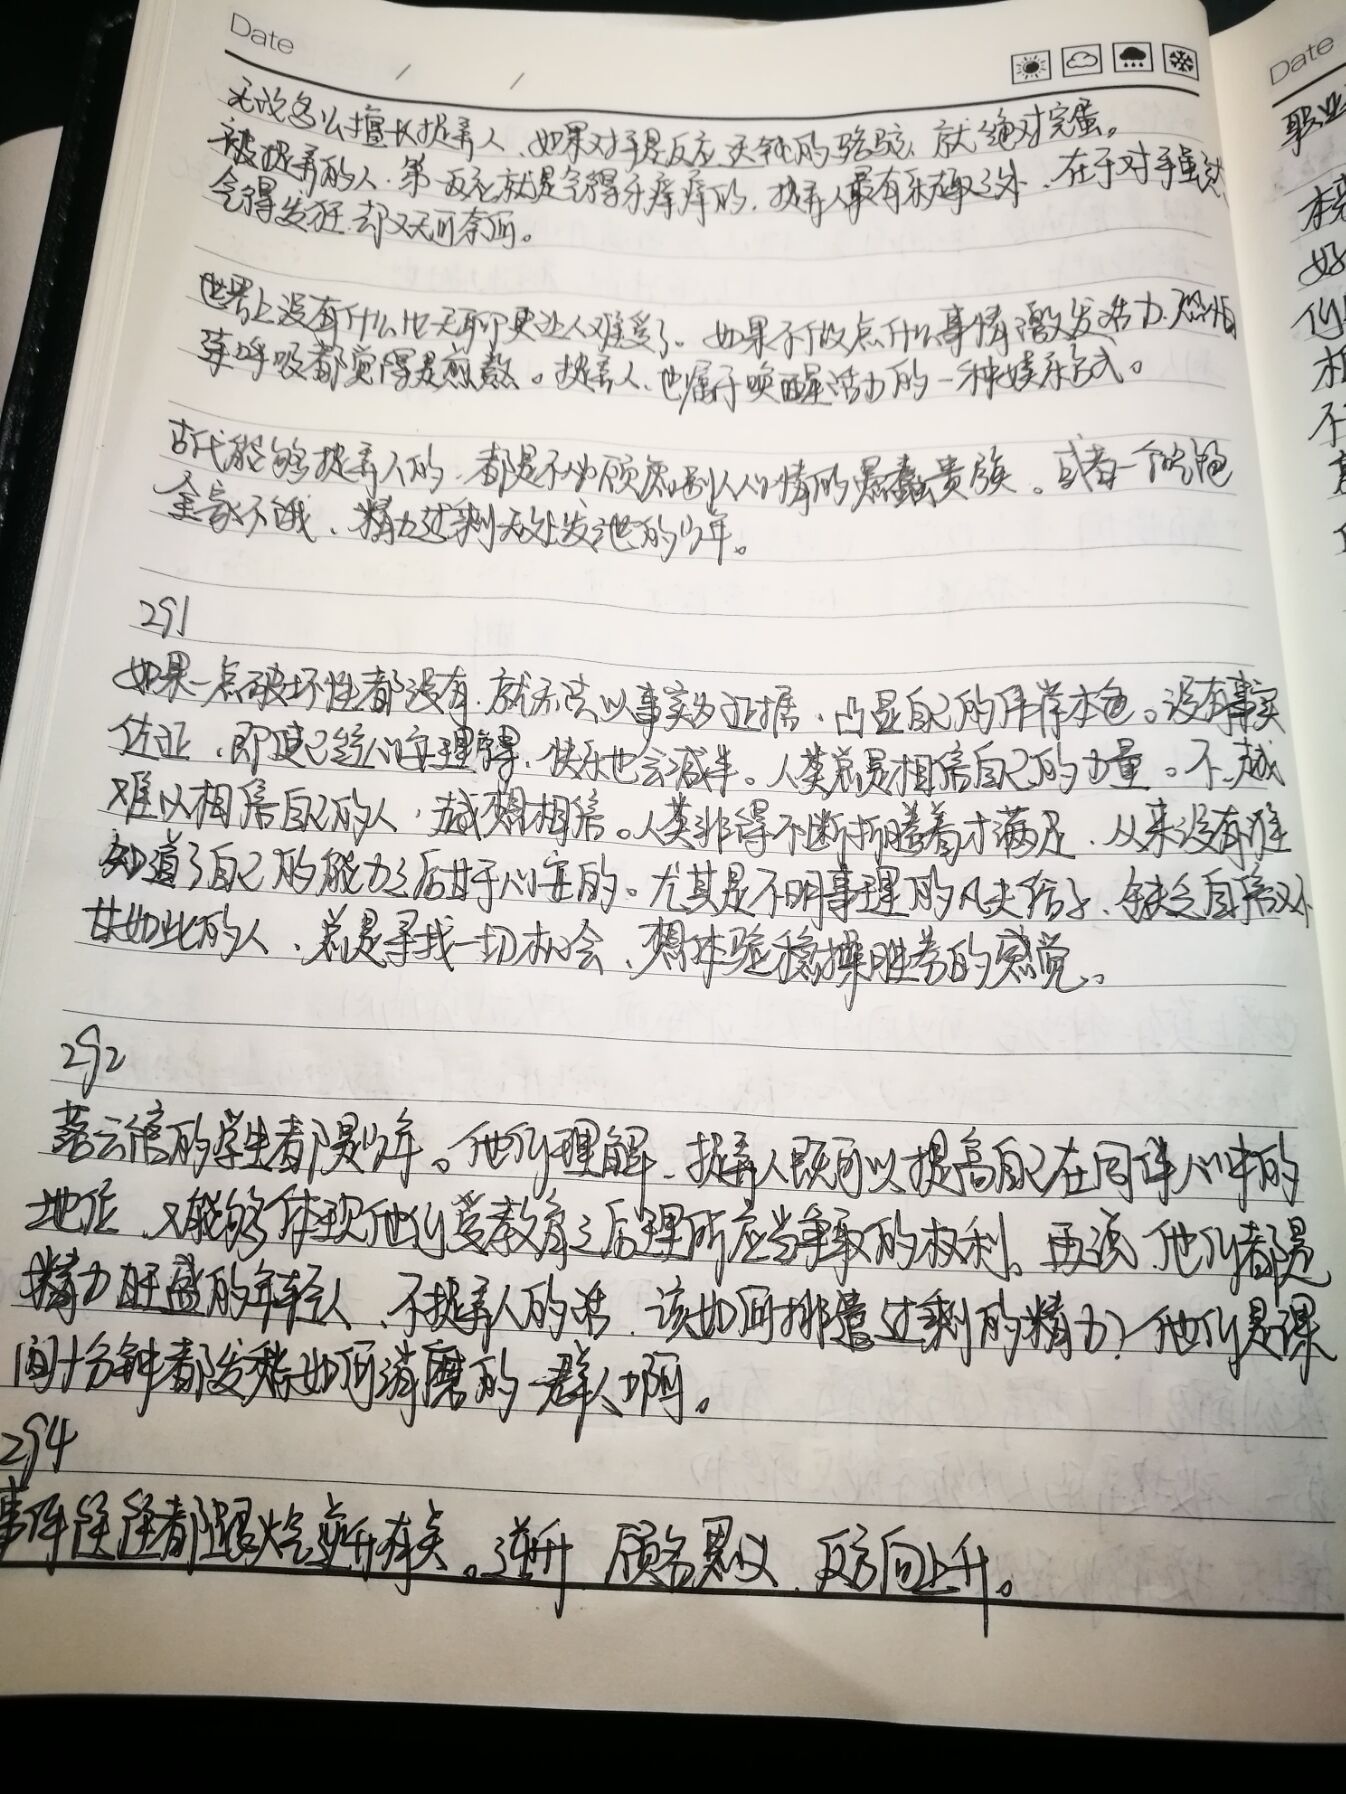 Date
Date
无论怎么擅长捉弄人、如果对手是反应迟钝的骆驼、就绝对完蛋。
被捉弄的人、第一反应就是气得牙痒痒的、捉弄人最有乐趣之外、在于对手虽然
气得发狂、却又无可奈何。
世界上没有什么比无聊更让人难受了。如果不做点什么事情激发活力、恐怕
连呼吸都觉得是煎熬。捉弄人、也属于唤醒活力的一种娱乐方式。
古代能够捉弄人的、都是不必顾虑别人心情的愚蠢贵族。或者一个吃饱
全家不饿、精力过剩无处发泄的少年。
291
如果一点破坏性都没有、就无法以事实为证据、凸显自己的伟岸本色。没有事实
佐证、即使已经心安理得、快乐也会减半。人类总是相信自己的力量。不、越
难以相信自己的人、越想相信。人类非得不断折腾着才满足、从来没有谁
知道了自己的能力之后甘于心安的。尤其是不明事理的凡夫俗子、缺乏自信又不
甘如此的人、总是寻找一切机会、想体验稳操胜券的感觉。
292
落云馆的学生都是少年。他们理解、捉弄人既可以提高自己在同伴心中的
地位、又能够体现他们受教育之后理所应当争取的权利。再说、他们都是
精力旺盛的年轻人、不捉弄人的话、该如何排遣过剩的精力？他们是课
间十分钟都发愁如何消磨的一群人啊。
294
事件往往都跟火气逆升有关。逆升、顾名思义、反方向上升。